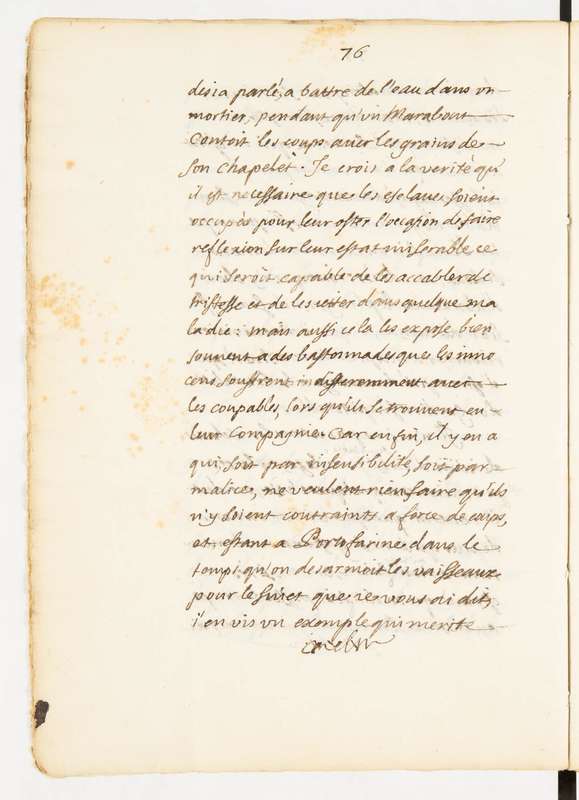 76
desia parlé, a battre de l'eau dans vn
mortier, pendant qu'vn Marabout
Contoit les coups auec les grains de
son chapelet. Je crois a la verité qu'
il est necessaire que les esclaues soient
occupés pour leur oster l'occasion de faire
reflexion sur leur estat miserable, ce
qui seroit capable de les accabler de
tristesse et de les ietter dans quelque ma
ladie: mais aussi cela les expose bien
souuent a des bastonnades que les inno
cens souffrent indifferemment auec
les coupables, lors qu'ils se trouuent en
leur Compagnie. Car enfin, il y en a
qui, soit par insensibilité, soit par
malice, ne veulent rien faire qu'ils
n'y soient contraints a force de coups,
et estant a Portofarine dans le
temps qu'on desarmoit les vaisseaux
pour le suiet que ie vous ai dit,
i'en vis vn exemple qui merite